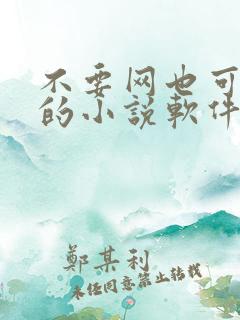 不要网也可
的小說軟件
鄭某利
未经同意禁止转载